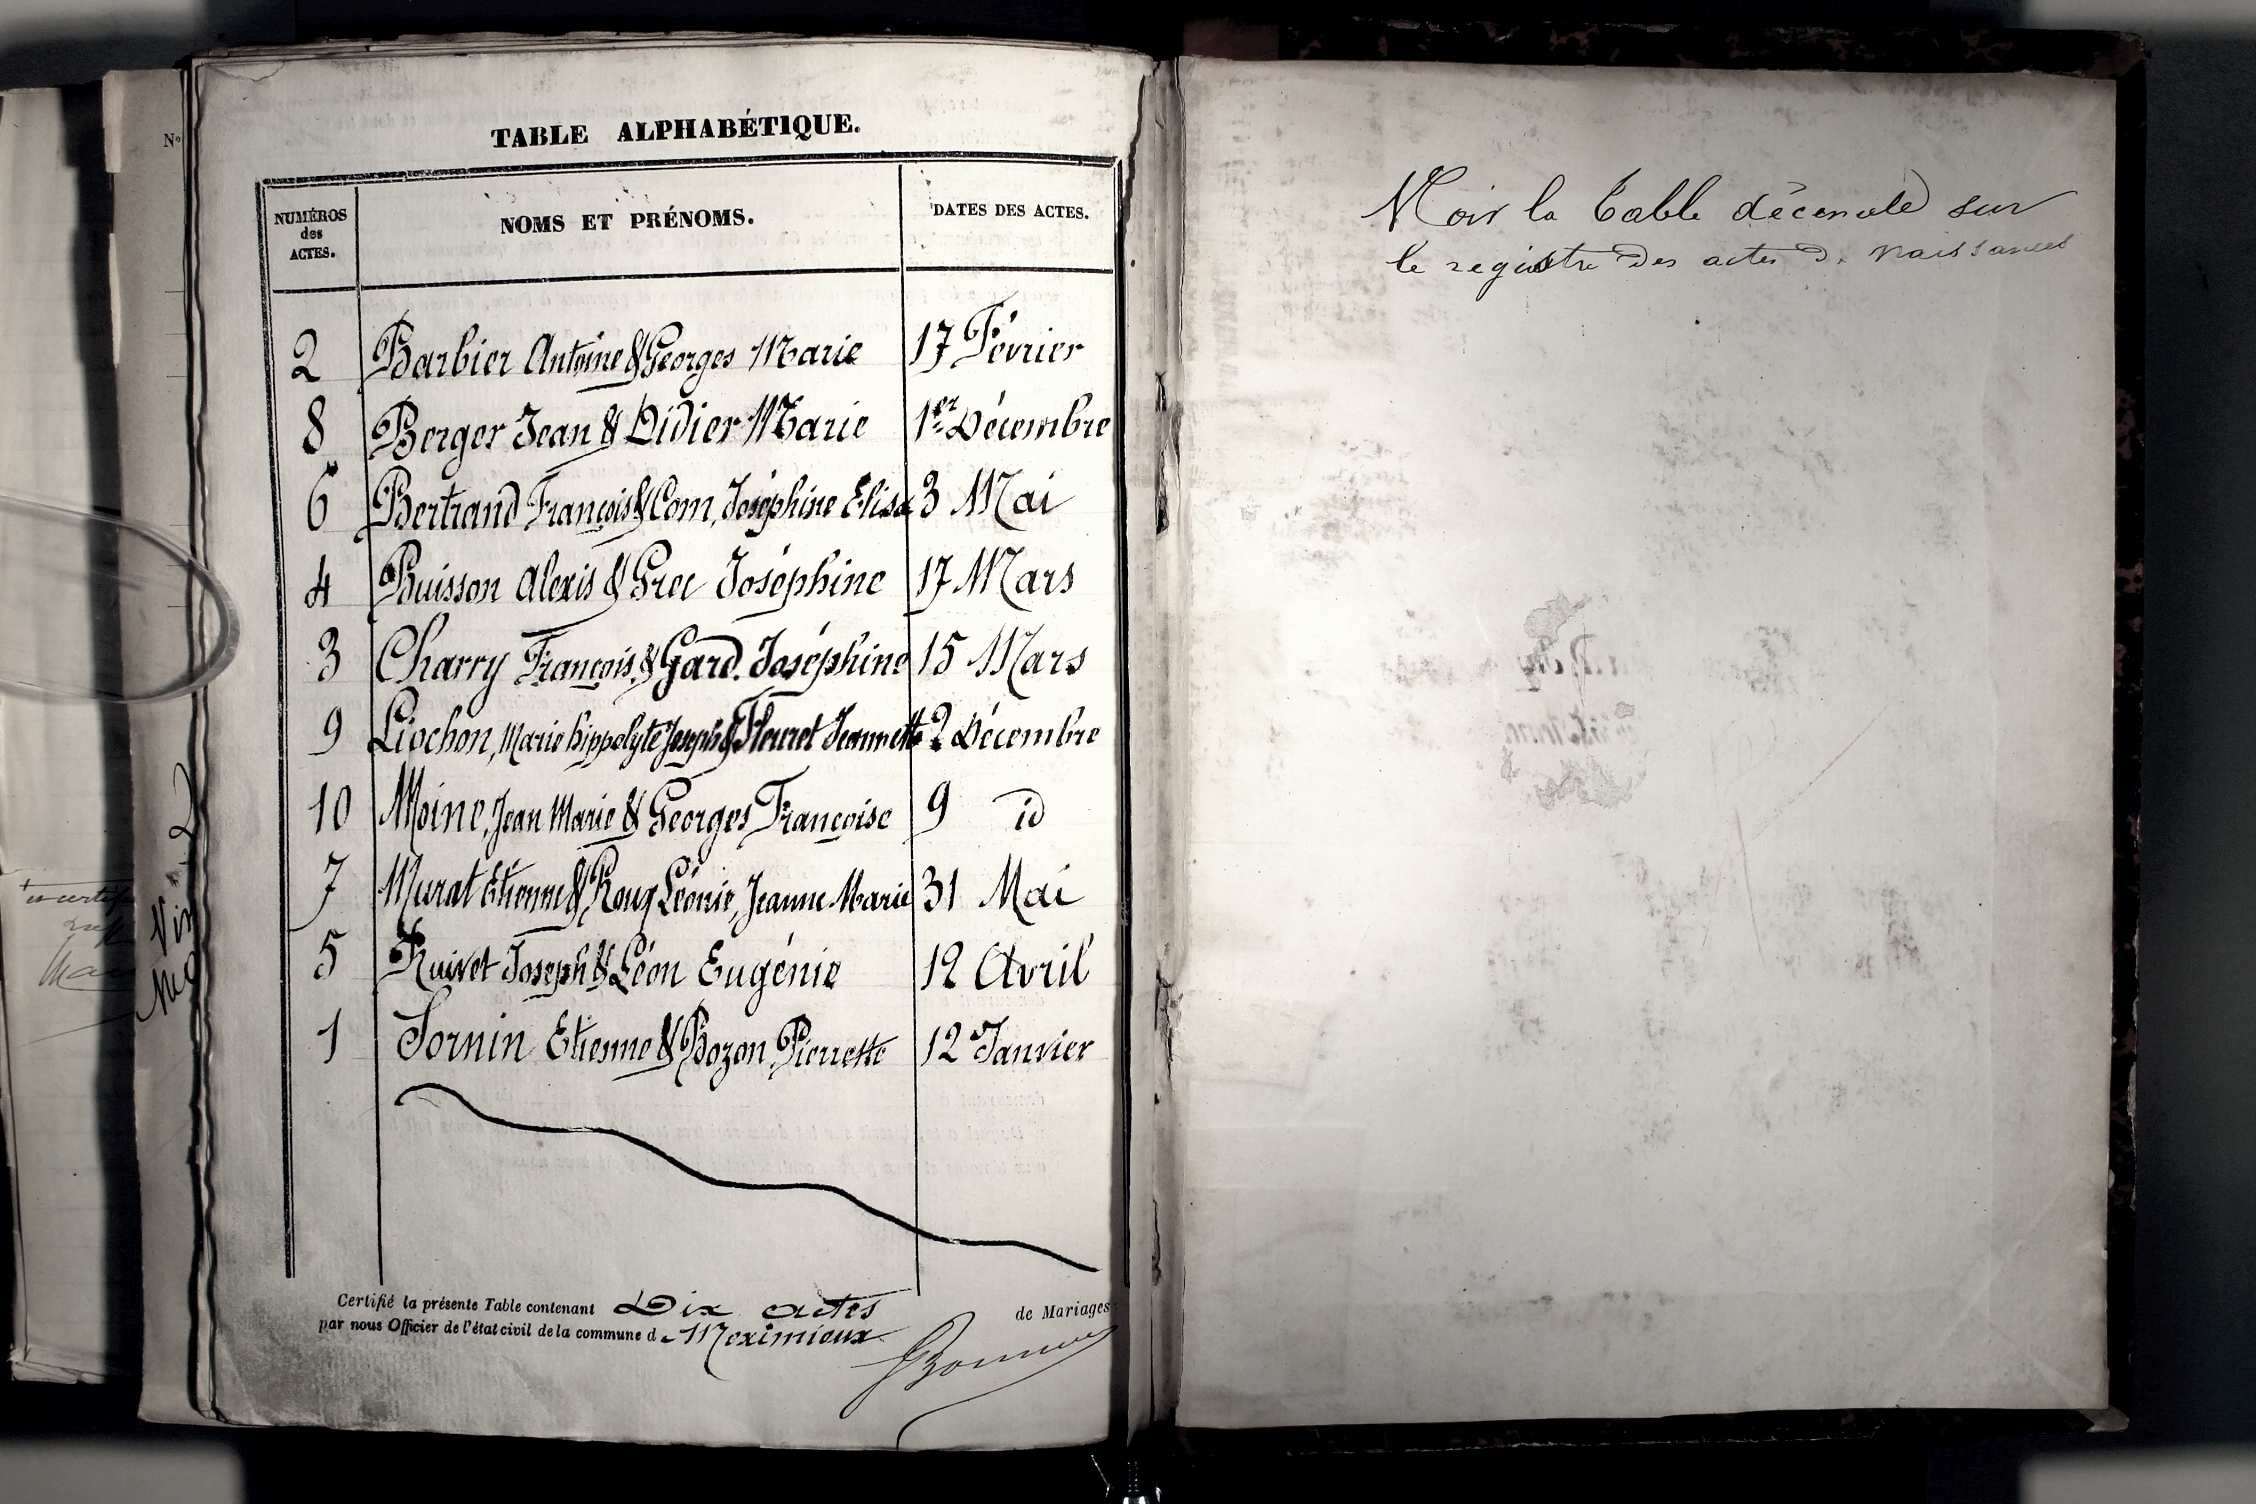 N°
TABLE ALPHABÉTIQUE.
NUMÉROS des ACTES. NOMS ET PRÉNOMS. DATES DES ACTES.
2 Barbier Antoine & Georges Marie 17 Février
8 Berger Jean & Didier Marie 1er Décembre
6 Bertrand François & Com, Joséphine Elisa 3 Mai
4 Buisson Alexis & Grec Joséphine 17 Mars
3 Charry François, & Gard. Joséphine 15 Mars
9 Liochon, Marie hippolyte Joseph & Fleuret Jeannette 2 Décembre
10 Moine, Jean Marie & Georges Françoise 9 id
7 Murat Etienne & Roux Léonie, Jeanne Marie 31 Mai
5 Ruivet Joseph & Léon Eugénie 12 Avril
1 Sornin Etienne & Bozon Pierrette 12 Janvier
Certifié la présente Table contenant Dix actes de Mariages
par nous Officier de l'état civil de la commune d Meximieux
Voir la table décenale sur
le registre des actes de naissances